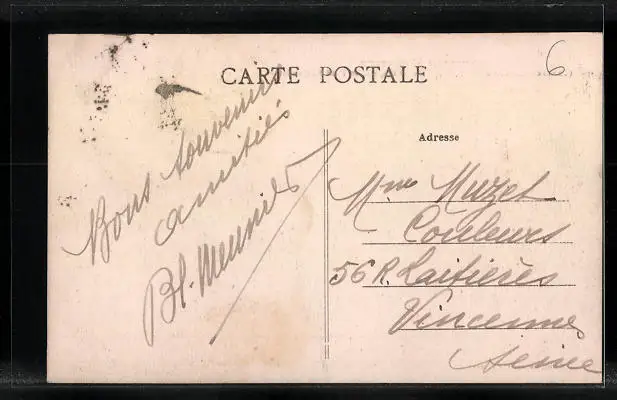 6
CARTE POSTALE
Bons souvenirs
amitiés
Bl. Meunier
Adresse
Mme Muzet
Couleurs
56 R. Laitières
Vincennes
Seine